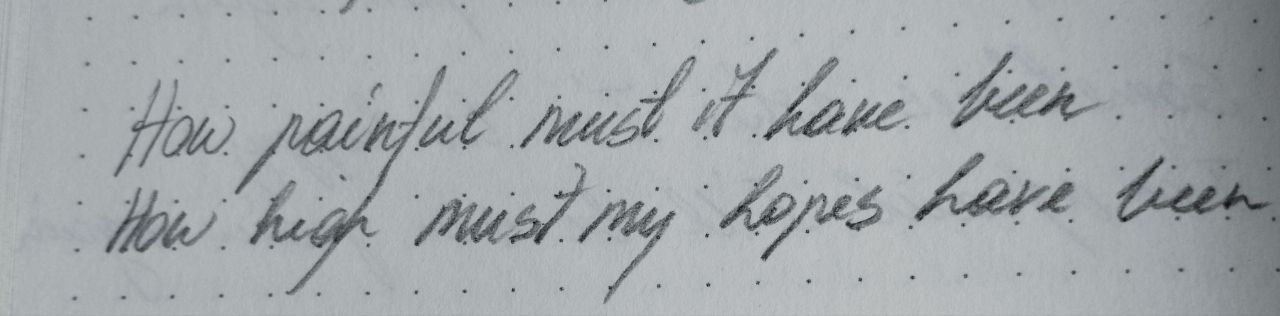 How painful must it have been
How high must my hopes have been